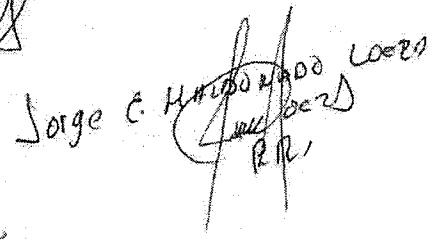 Jorge C. MALDONADO LOERA
LOERA
RR,